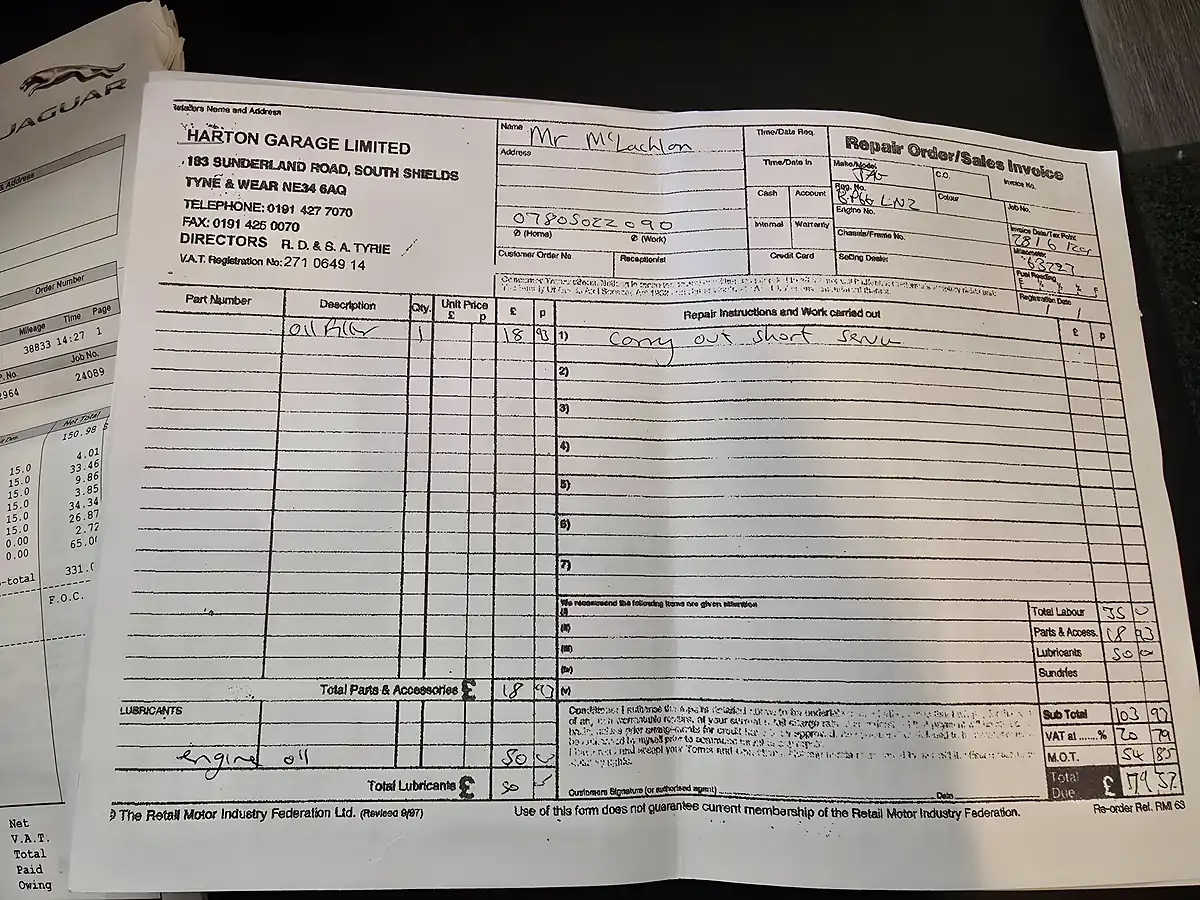 JAGUAR
& Address
Order Number
Mileage Time Page
38833 14:27 1
Job No.
24089
2964
Net Total
150.98
4.01
15.0 33.46
15.0 9.86
15.0 3.85
15.0 34.34
15.0 26.87
15.0 2.72
0.00 65.00
0.00
-total 331.
F.O.C.
Net
V.A.T.
Total
Paid
Owing
Retailers Name and Address
HARTON GARAGE LIMITED
183 SUNDERLAND ROAD, SOUTH SHIELDS
TYNE & WEAR NE34 6AQ
TELEPHONE: 0191 427 7070
FAX: 0191 425 0070
DIRECTORS R. D. & S. A. TYRIE
V.A.T. Registration No: 271 0649 14
Name Mr McLachlan
Address
07805022090
(Home) (Work)
Customer Order No. Receptionist
Time/Date Req.
Time/Date In
Cash Account
Internal Warranty
Credit Card
Repair Order/Sales Invoice
Make/Model C.O. Invoice No.
JAG
Reg. No. Colour Job No.
LNZ
Engine No. Invoice Date/Tax Point
Chassis/Frame No.
63727
Selling Dealer Fuel Reading
E ¼ ½ ¾ F
Registration Date
/ /
Part Number Description Qty. Unit Price £ p £ p Repair Instructions and Work carried out £ p
oil filter 1 18 93 1) Carry out short service
2)
3)
4)
5)
6)
7)
We recommend the following items are given attention
(i)
(ii)
(iii)
(iv)
(v)
Total Labour 35 0
Parts & Access. 18 93
Lubricants 50 00
Sundries
Total Parts & Accessories £ 18 93
Sub Total 103 93
VAT at ......% 20 79
M.O.T. 54 85
Total Due £ 179 57
LUBRICANTS
engine oil 50
Total Lubricants £ 50
Customers Signature (or authorised agent) Date
© The Retail Motor Industry Federation Ltd. (Revised 9/97) Use of this form does not guarantee current membership of the Retail Motor Industry Federation. Re-order Ref. RMI 63